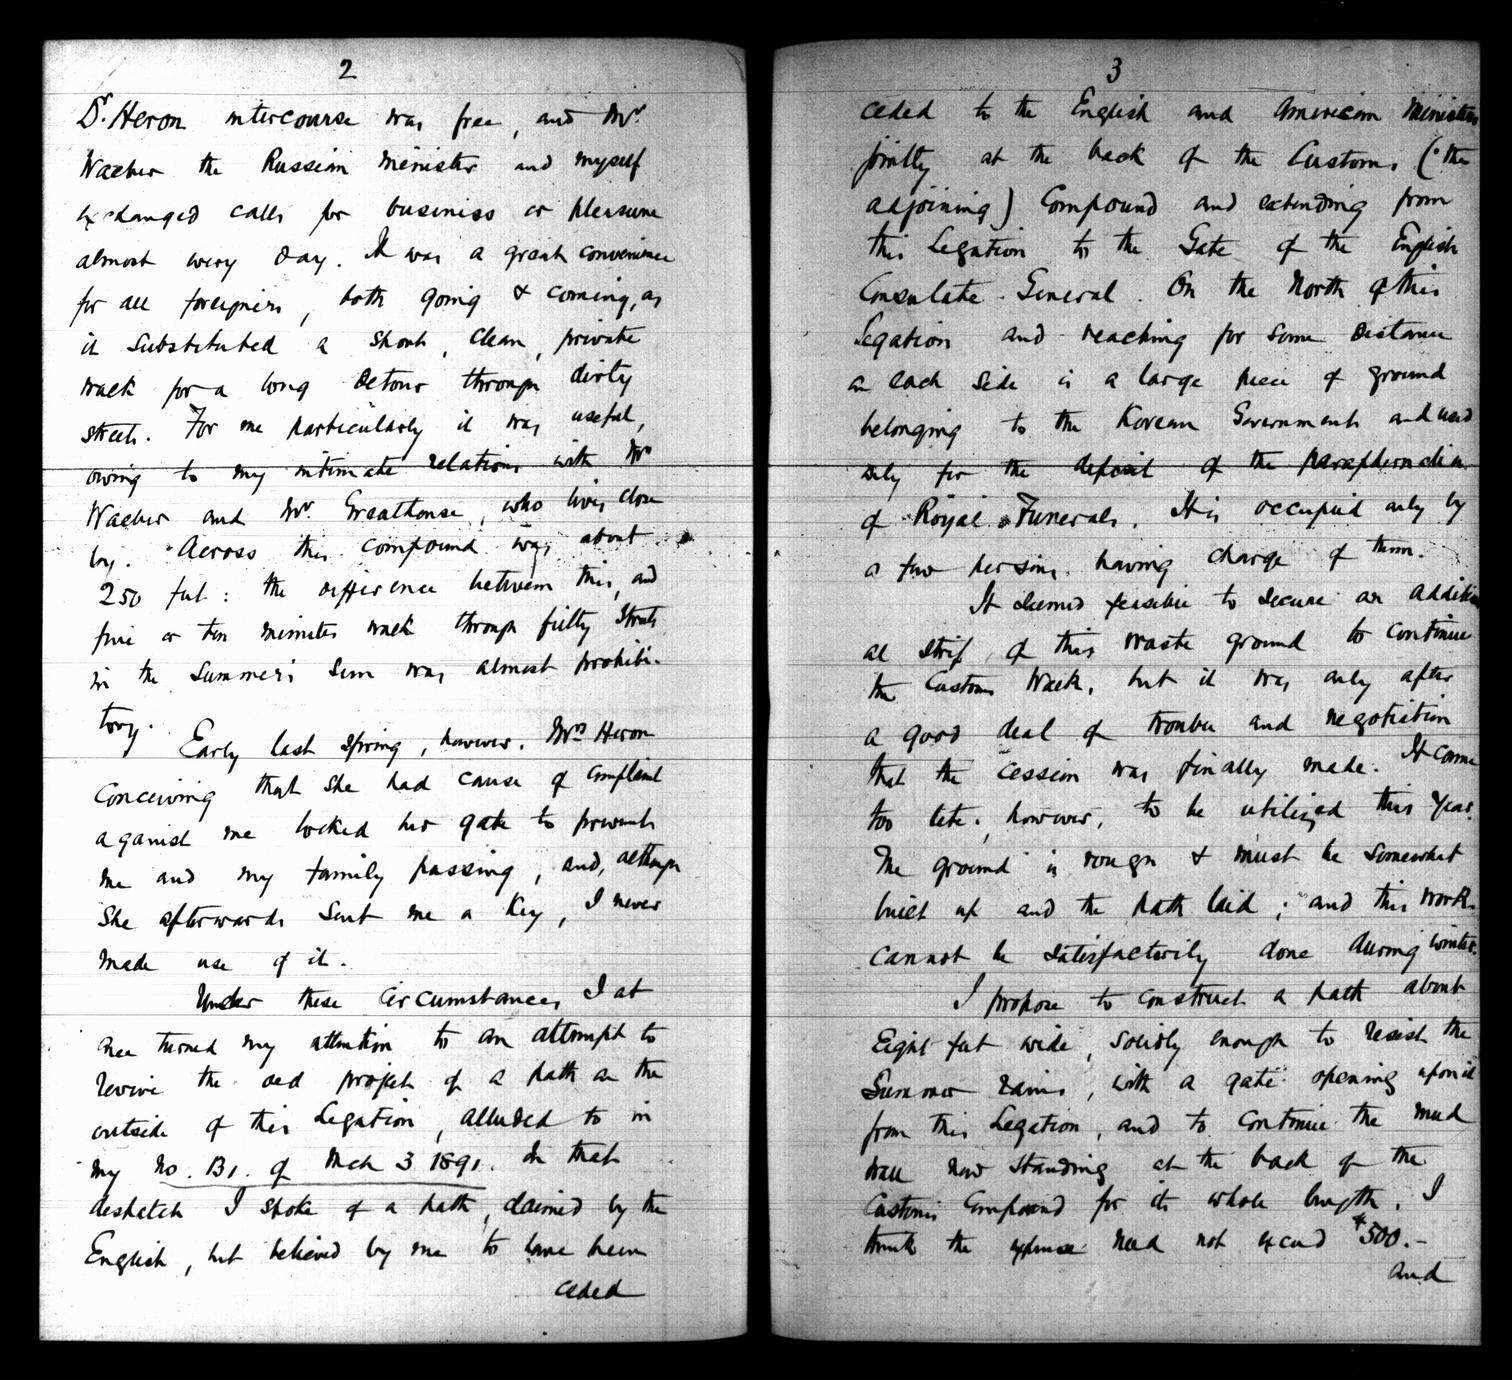 2
Dr. Heron intercourse was free, and Mr.
Waeber the Russian Minister and myself
exchanged calls for business or pleasure
almost every day. It was a great convenience
for all foreigners, both going & coming, as
it substituted a short, clean, private
walk for a long detour through dirty
streets. For me particularly it was useful,
owing to my intimate relations with Mr.
Waeber and Mr. Greathouse, who lives close
by. Across this compound was about
250 feet: the difference between this, and
five or ten minutes walk through filthy streets
in the Summer's Sun was almost prohibi-
tory.
Early last Spring, however, Mrs Heron
conceiving that she had cause of complaint
against me locked her gate to prevent
me and my family passing, and, although
she afterwards sent me a key, I never
made use of it.
Under these circumstances, I at
once turned my attention to an attempt to
revive the old project of a path on the
outside of this Legation, alluded to in
my No. 131. of Mch 3 1891. In that
despatch I spoke of a path, claimed by the
English, but believed by me to have been
ceded
3
ceded to the English and American Ministers
jointly at the back of the Customs (the
adjoining) Compound and extending from
this Legation to the Gate of the English
Consulate-General. On the North of this
Legation and reaching for some distance
on each side is a large piece of ground
belonging to the Korean Government and used
only for the deposit of the paraphernalia
of Royal Funerals. It is occupied only by
a few persons having charge of them.
It seemed feasible to secure an addition-
al strip of this waste ground to continue
the Customs Walk, but it was only after
a good deal of trouble and negotiation
that the cession was finally made. It came
too late, however, to be utilized this year.
The ground is rough & must be somewhat
built up and the path laid; and this work
cannot be satisfactorily done during winter.
I propose to construct a path about
Eight feet wide, solidly enough to resist the
Summer rains, with a gate opening upon it
from this Legation, and to continue the mud
wall now standing at the back of the
Customs Compound for its whole length. I
think the expense need not exceed $500.-
and